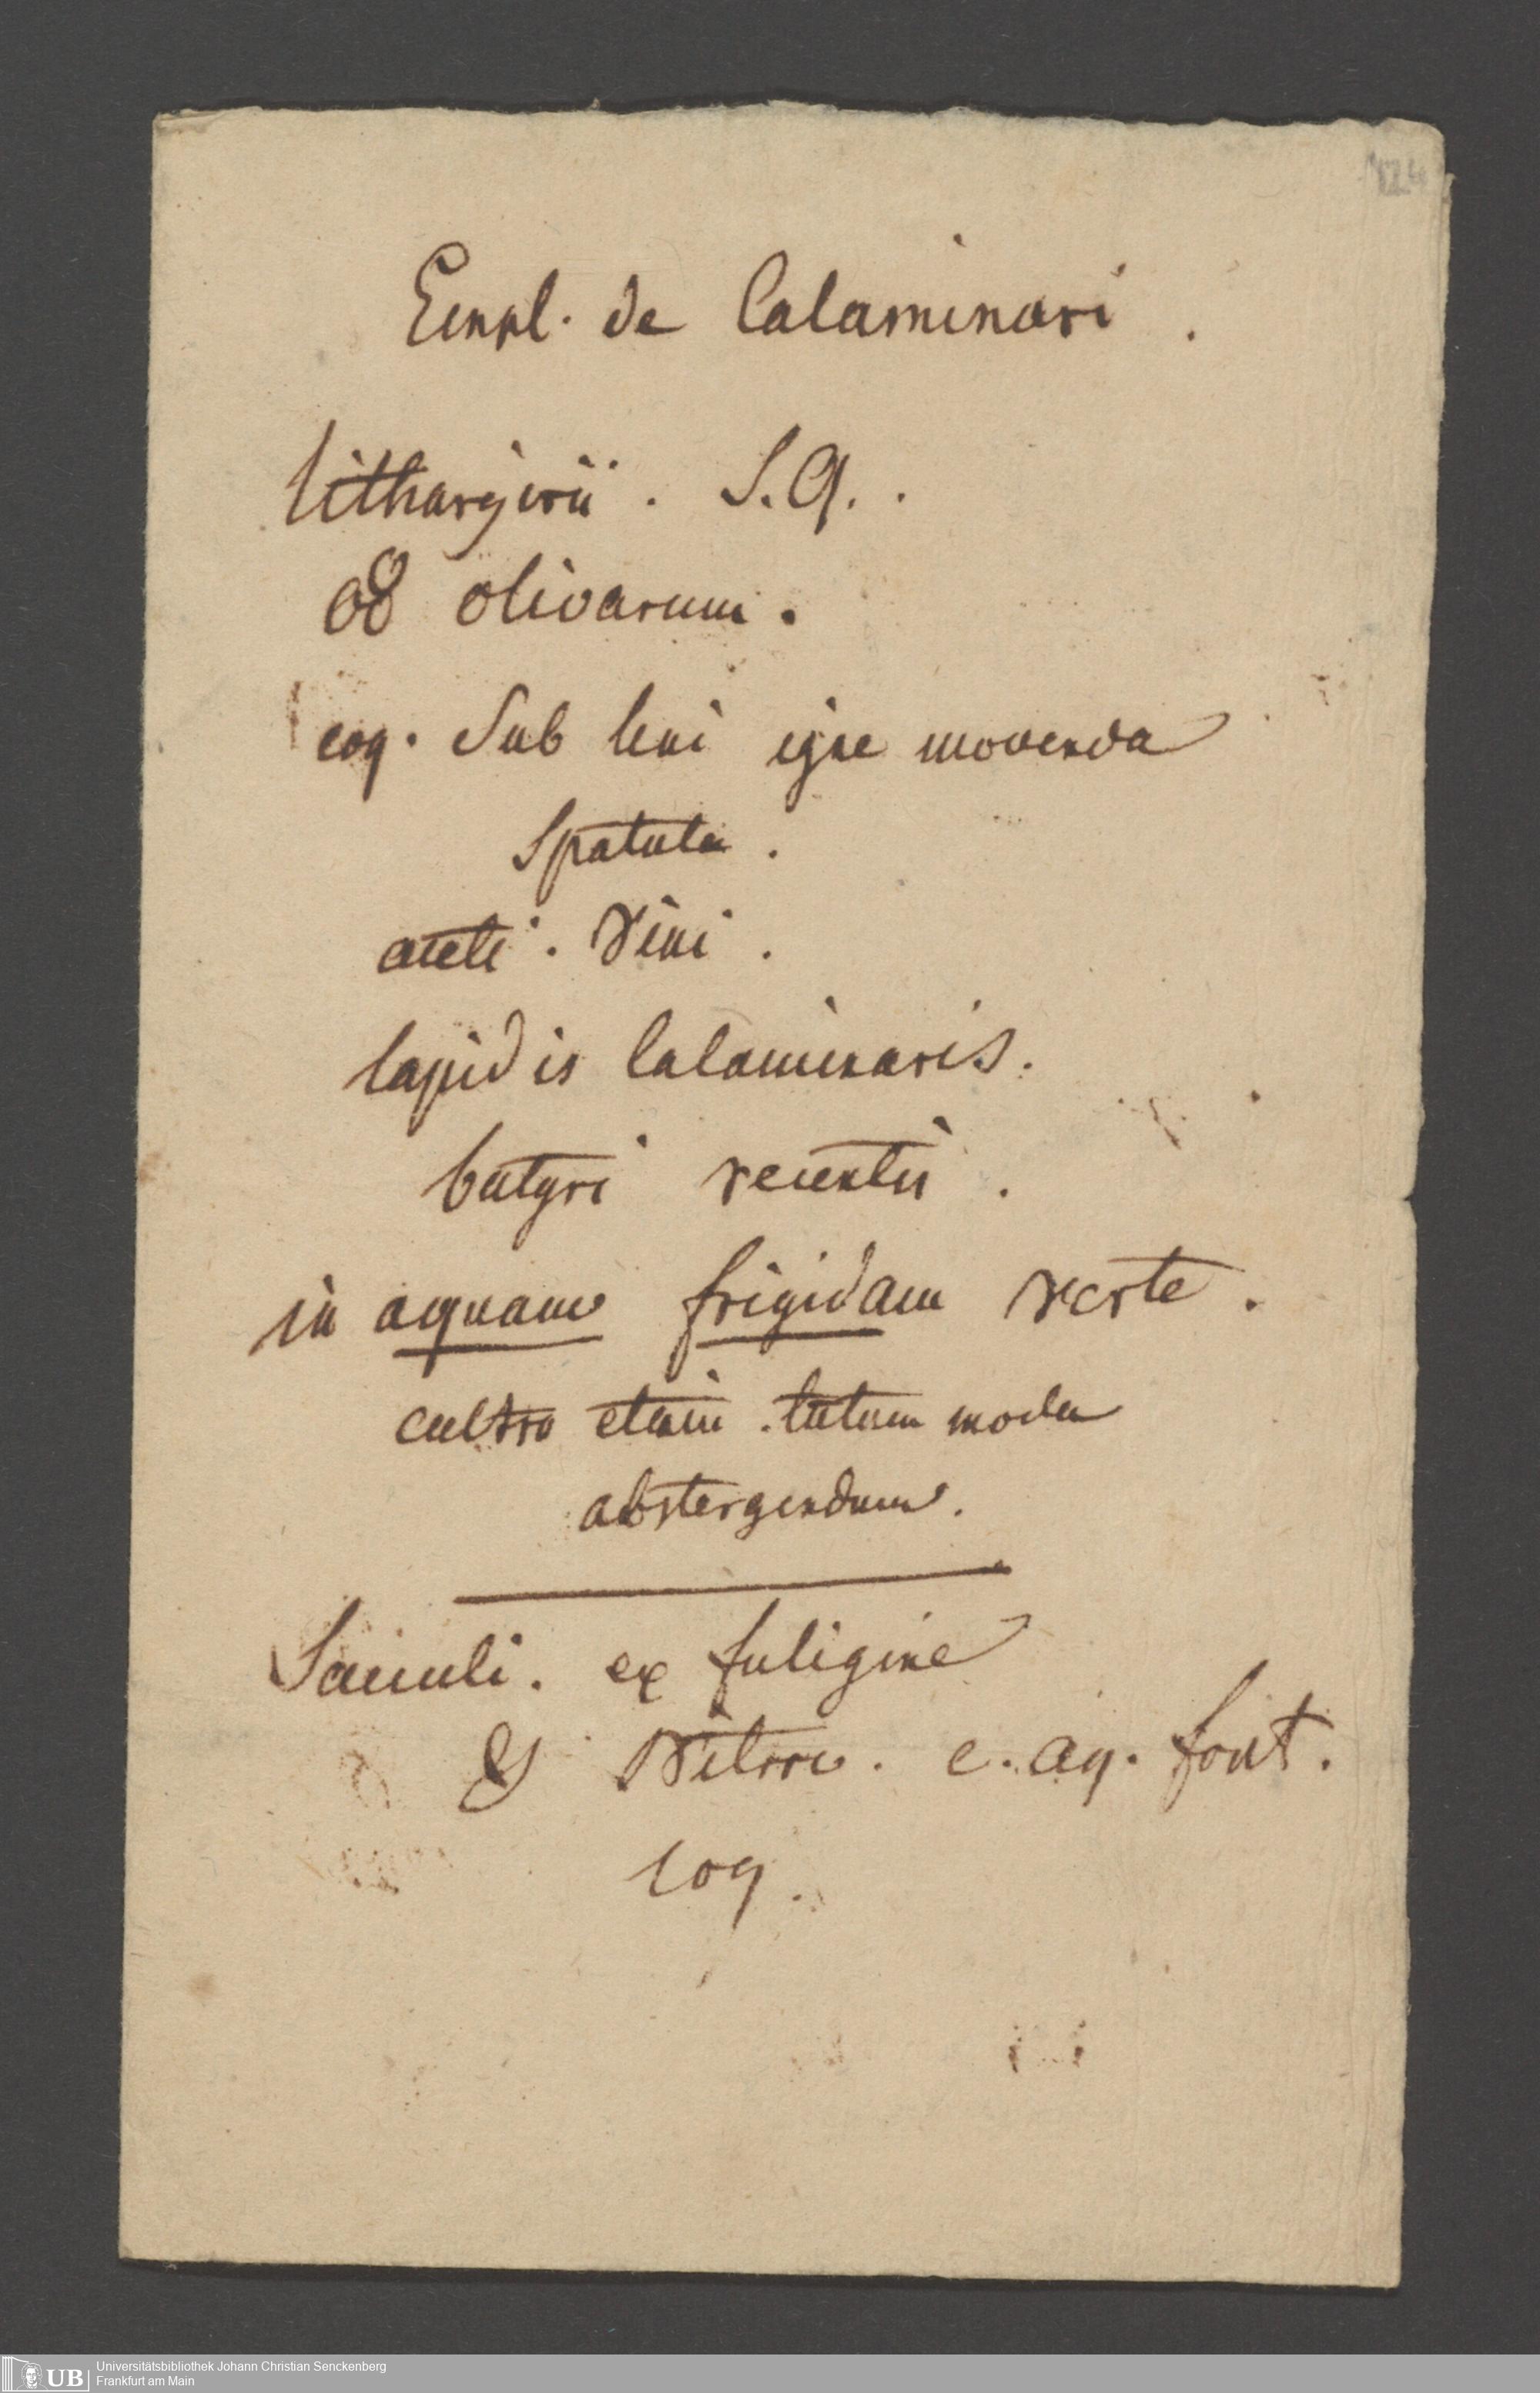 124
Empl. de Calaminari.
lithargirii. S. Q.
olivarum.
coq. Sub leni igne movenda
Spatula.
aceti. Vini.
lapidis Calaminaris.
butyri recentis.
in aquam frigidam verte.
cultro etaim. tutum modo
abstergendum.
Sacculi. ex fuligine
& Nitro. c. aq. font.
coq.
UB Universitätsbibliothek Johann Christian Senckenberg
Frankfurt am Main